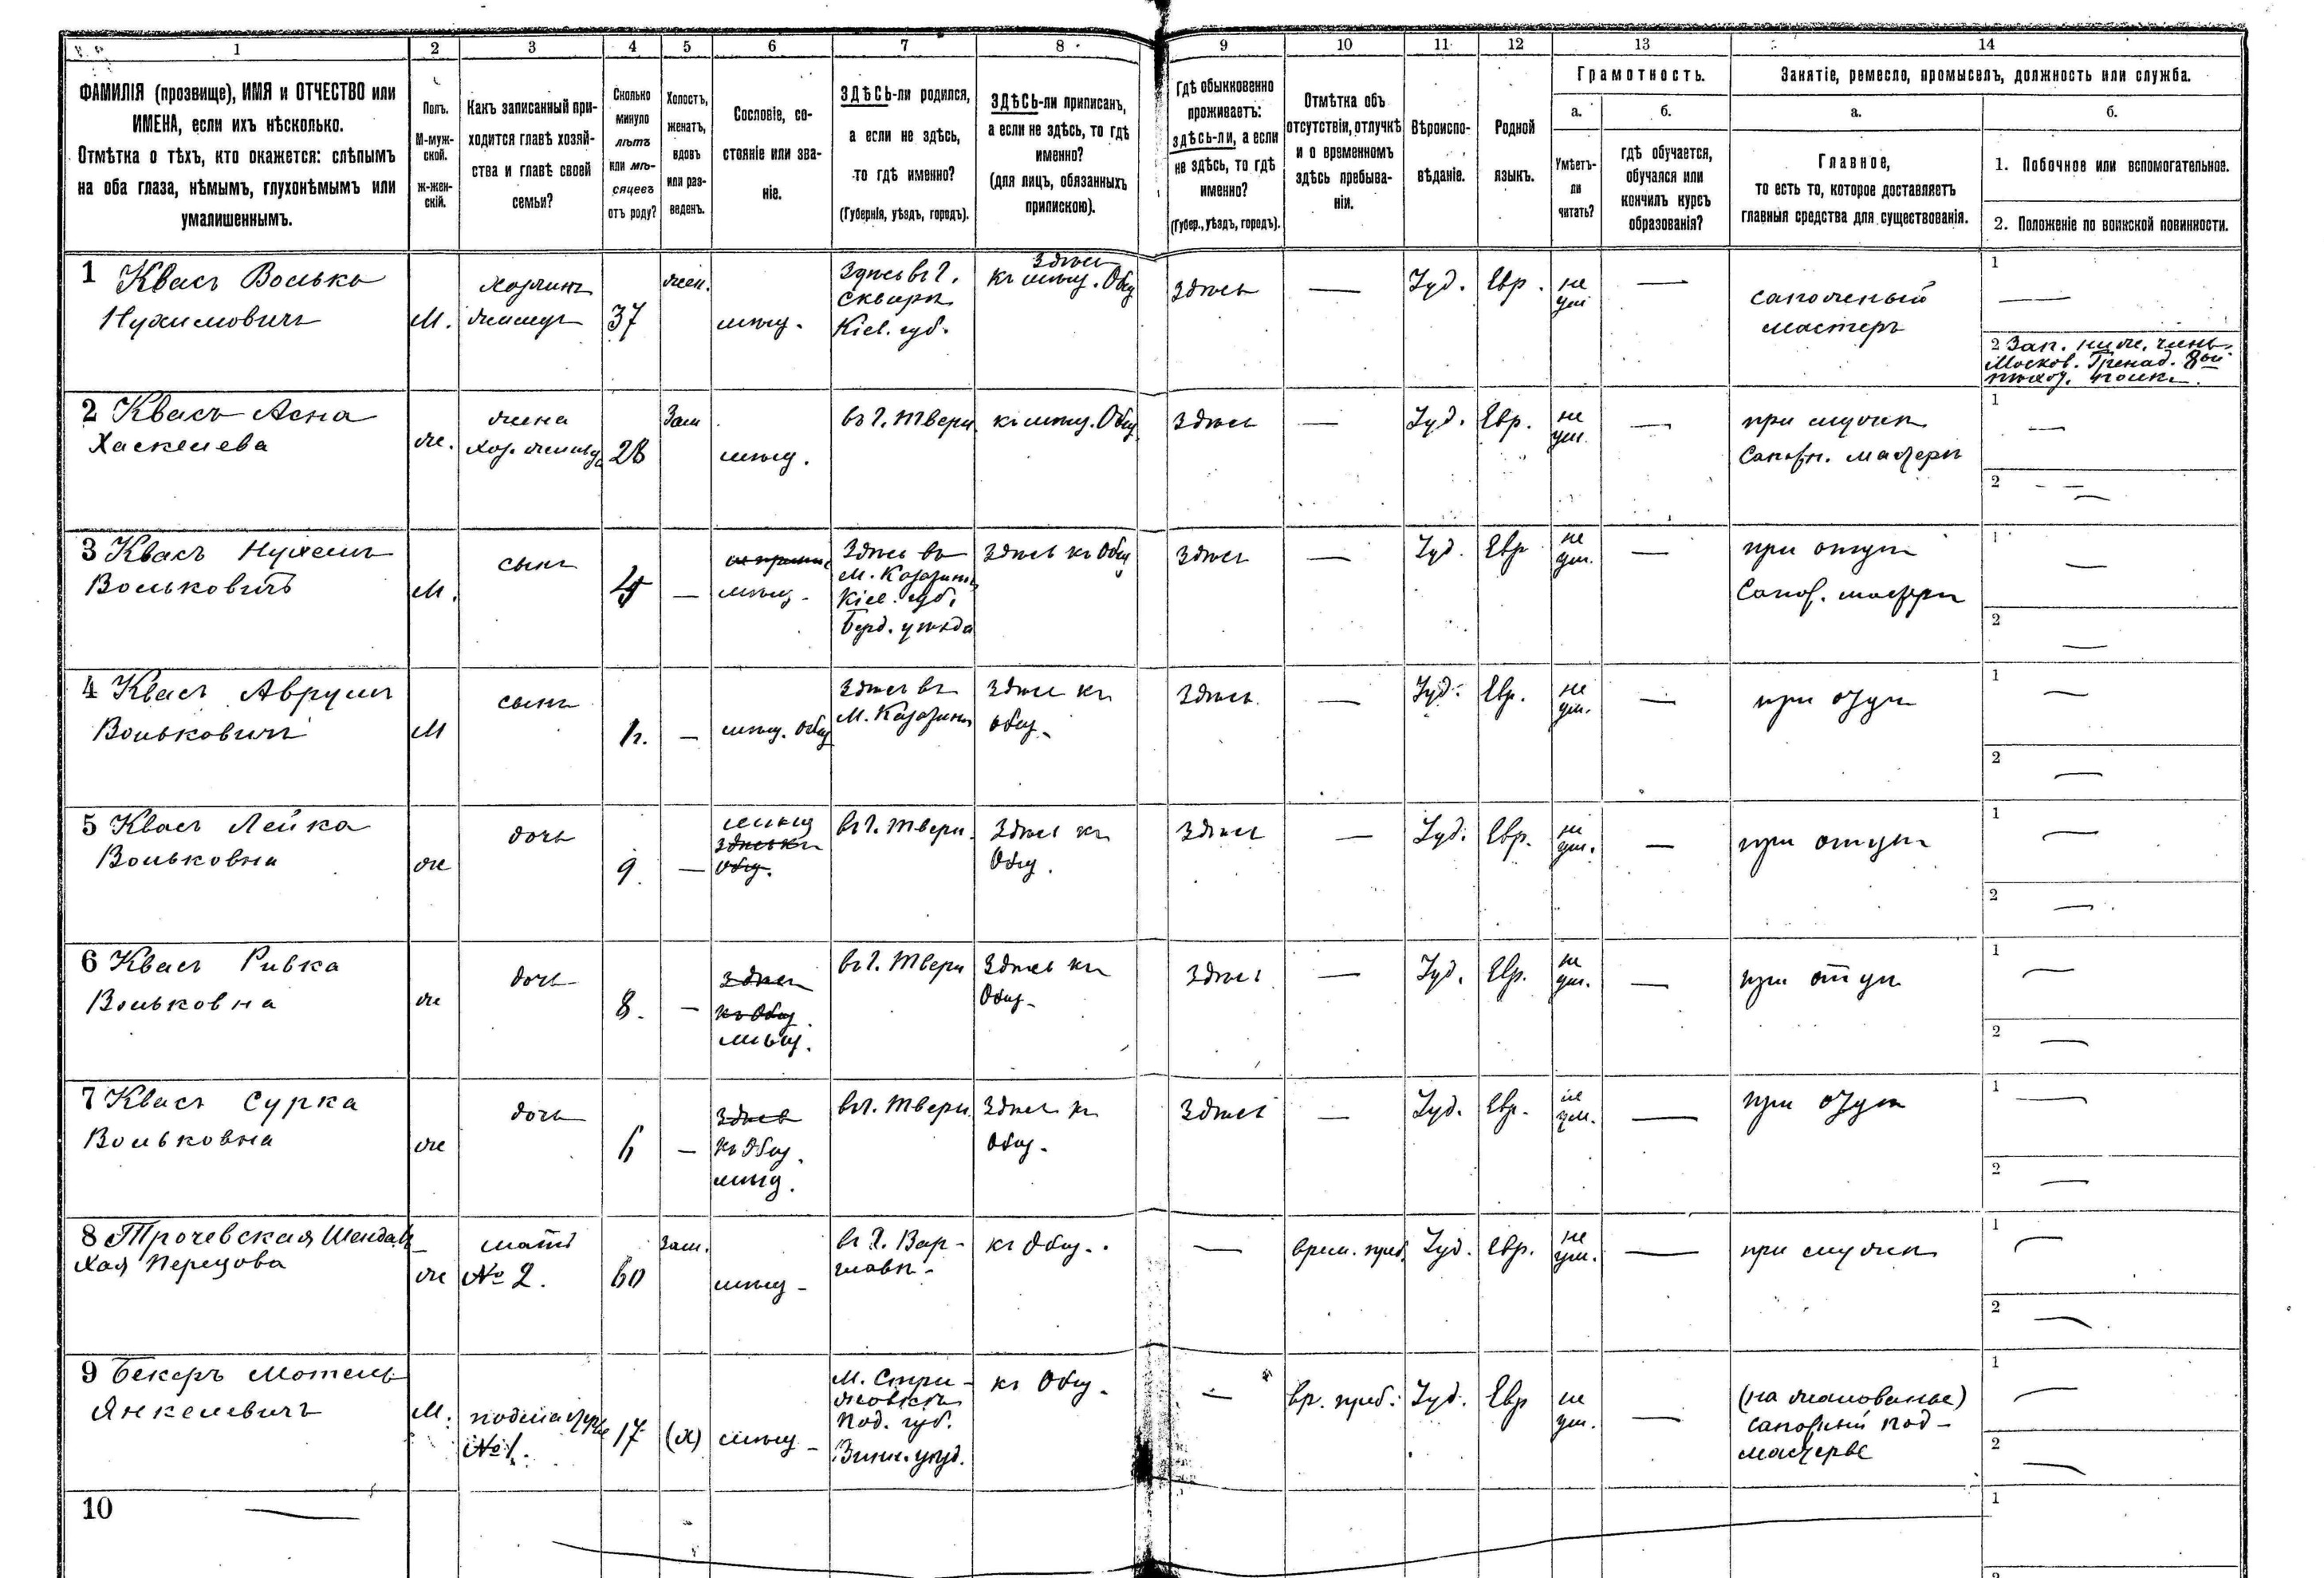 1 2 3 4 5 6 7 8 9 10 11 12 13 14
ФАМИЛІЯ (прозвище), ИМЯ и ОТЧЕСТВО или
ИМЕНА, если ихъ нѣсколько.
Отмѣтка о тѣхъ, кто окажется: слѣпымъ
на оба глаза, нѣмымъ, глухонѣмымъ или
умалишеннымъ.
Полъ.
М-муж-
ской.
Ж-жен-
скій.
Какъ записанный при-
ходится главѣ хозяй-
ства и главѣ своей
семьи?
Сколько
минуло
лѣтъ
или мѣ-
сяцевъ
отъ роду?
Холостъ,
женатъ,
вдовъ
или раз-
веденъ.
Сословіе, со-
стояніе или зва-
ніе.
ЗДѢСЬ-ли родился,
а если не здѣсь,
то гдѣ именно?
(Губернія, уѣздъ, городъ).
ЗДѢСЬ-ли приписанъ,
а если не здѣсь, то гдѣ
именно?
(для лицъ, обязанныхъ
припискою).
Гдѣ обыкновенно
проживаетъ:
здѣсь-ли, а если
не здѣсь, то гдѣ
именно?
(Губер., уѣздъ, городъ).
Отмѣтка объ
отсутствіи, отлучкѣ
и о временномъ
здѣсь пребыва-
ніи.
Вѣроиспо-
вѣданіе.
Родной
языкъ.
Грамотность.
а.
Умѣетъ-
ли
читать?
б.
гдѣ обучается,
обучался или
кончилъ курсъ
образованія?
Занятіе, ремесло, промыселъ, должность или служба.
а.
Главное,
то есть то, которое доставляетъ
главныя средства для существованія.
б.
1. Побочное или вспомогательное.
2. Положеніе по воинской повинности.
1 Квасъ Волько
Нухимовичъ
М.
хозяинъ
37
жен.
мѣщ.
Здѣсь въ г.
Сквирѣ
Кіев. губ.
Здѣсь
къ мѣщ. Общ
Здѣсь
—
Іуд.
Евр.
не
ум
—
сапожный
мастеръ
1
—
2 Зап. ниж. чинъ
Москов. Гренад. 8ой
2 Квасъ Асна
Хаскелева
ж.
жена
28
Зам
мѣщ.
въ г. Твери
къ мѣщ. Общ
Здѣсь
—
Іуд.
Евр.
не
ум.
—
при мужѣ
1
—
2
3 Квасъ Нухемъ
Вольковичъ
М.
сынъ
—
мѣщ.
Здѣсь въ
М. Казатинѣ
Кіев. губ.
Берд. уѣзда
Здѣсь къ Общ
Здѣсь
—
Іуд.
Евр
не
ум.
—
при отцѣ
1
—
2
—
4 Квасъ Аврумъ
Вольковичъ
М
сынъ
—
мѣщ. Общ
Здѣсь въ
М. Казатинѣ
Здѣсь къ
общ.
Здѣсь
—
Іуд.
Евр.
не
ум.
—
при отцѣ
1
—
2
—
5 Квасъ Лейка
Вольковна
ж
дочь
9.
—
мѣщ
Здѣсь къ
Общ.
въ г. Твери
Здѣсь къ
Общ.
Здѣсь
—
Іуд.
Евр.
не
ум.
—
при отцѣ
1
—
2
—
6 Квасъ Ривка
Вольковна
ж
дочь
8.
—
Здѣсь
къ Общ.
мѣщ.
въ г. Твери
Здѣсь къ
Общ.
Здѣсь
—
Іуд.
Евр.
не
ум.
—
при отцѣ
1
—
2
—
7 Квасъ Сурка
Вольковна
ж
дочь
6
—
Здѣсь
къ Общ.
мѣщ.
въ г. Твери
Здѣсь къ
Общ.
Здѣсь
—
Іуд.
Евр.
не
ум.
—
при отцѣ
1
—
2
—
8 Трочевская
Хая Перецова
ж
мать
№ 2.
60
Зам.
мѣщ
въ г. Вар-
шавѣ
къ Общ.
—
врем. преб.
Іуд.
Евр.
не
ум.
—
при мужѣ
1
—
2
—
9 Бекеръ Мотель
Янкелевичъ
М.
подмастерье
№ 1.
17
(х)
мѣщ
М. Стри-
жовкѣ
Под. губ.
Винн. уѣзд.
къ Общ.
—
вр. преб.
Іуд.
Евр
не
ум.
—
(на жалованье)
сапожный под-
мастерье
1
—
2
—
10 —
1
2